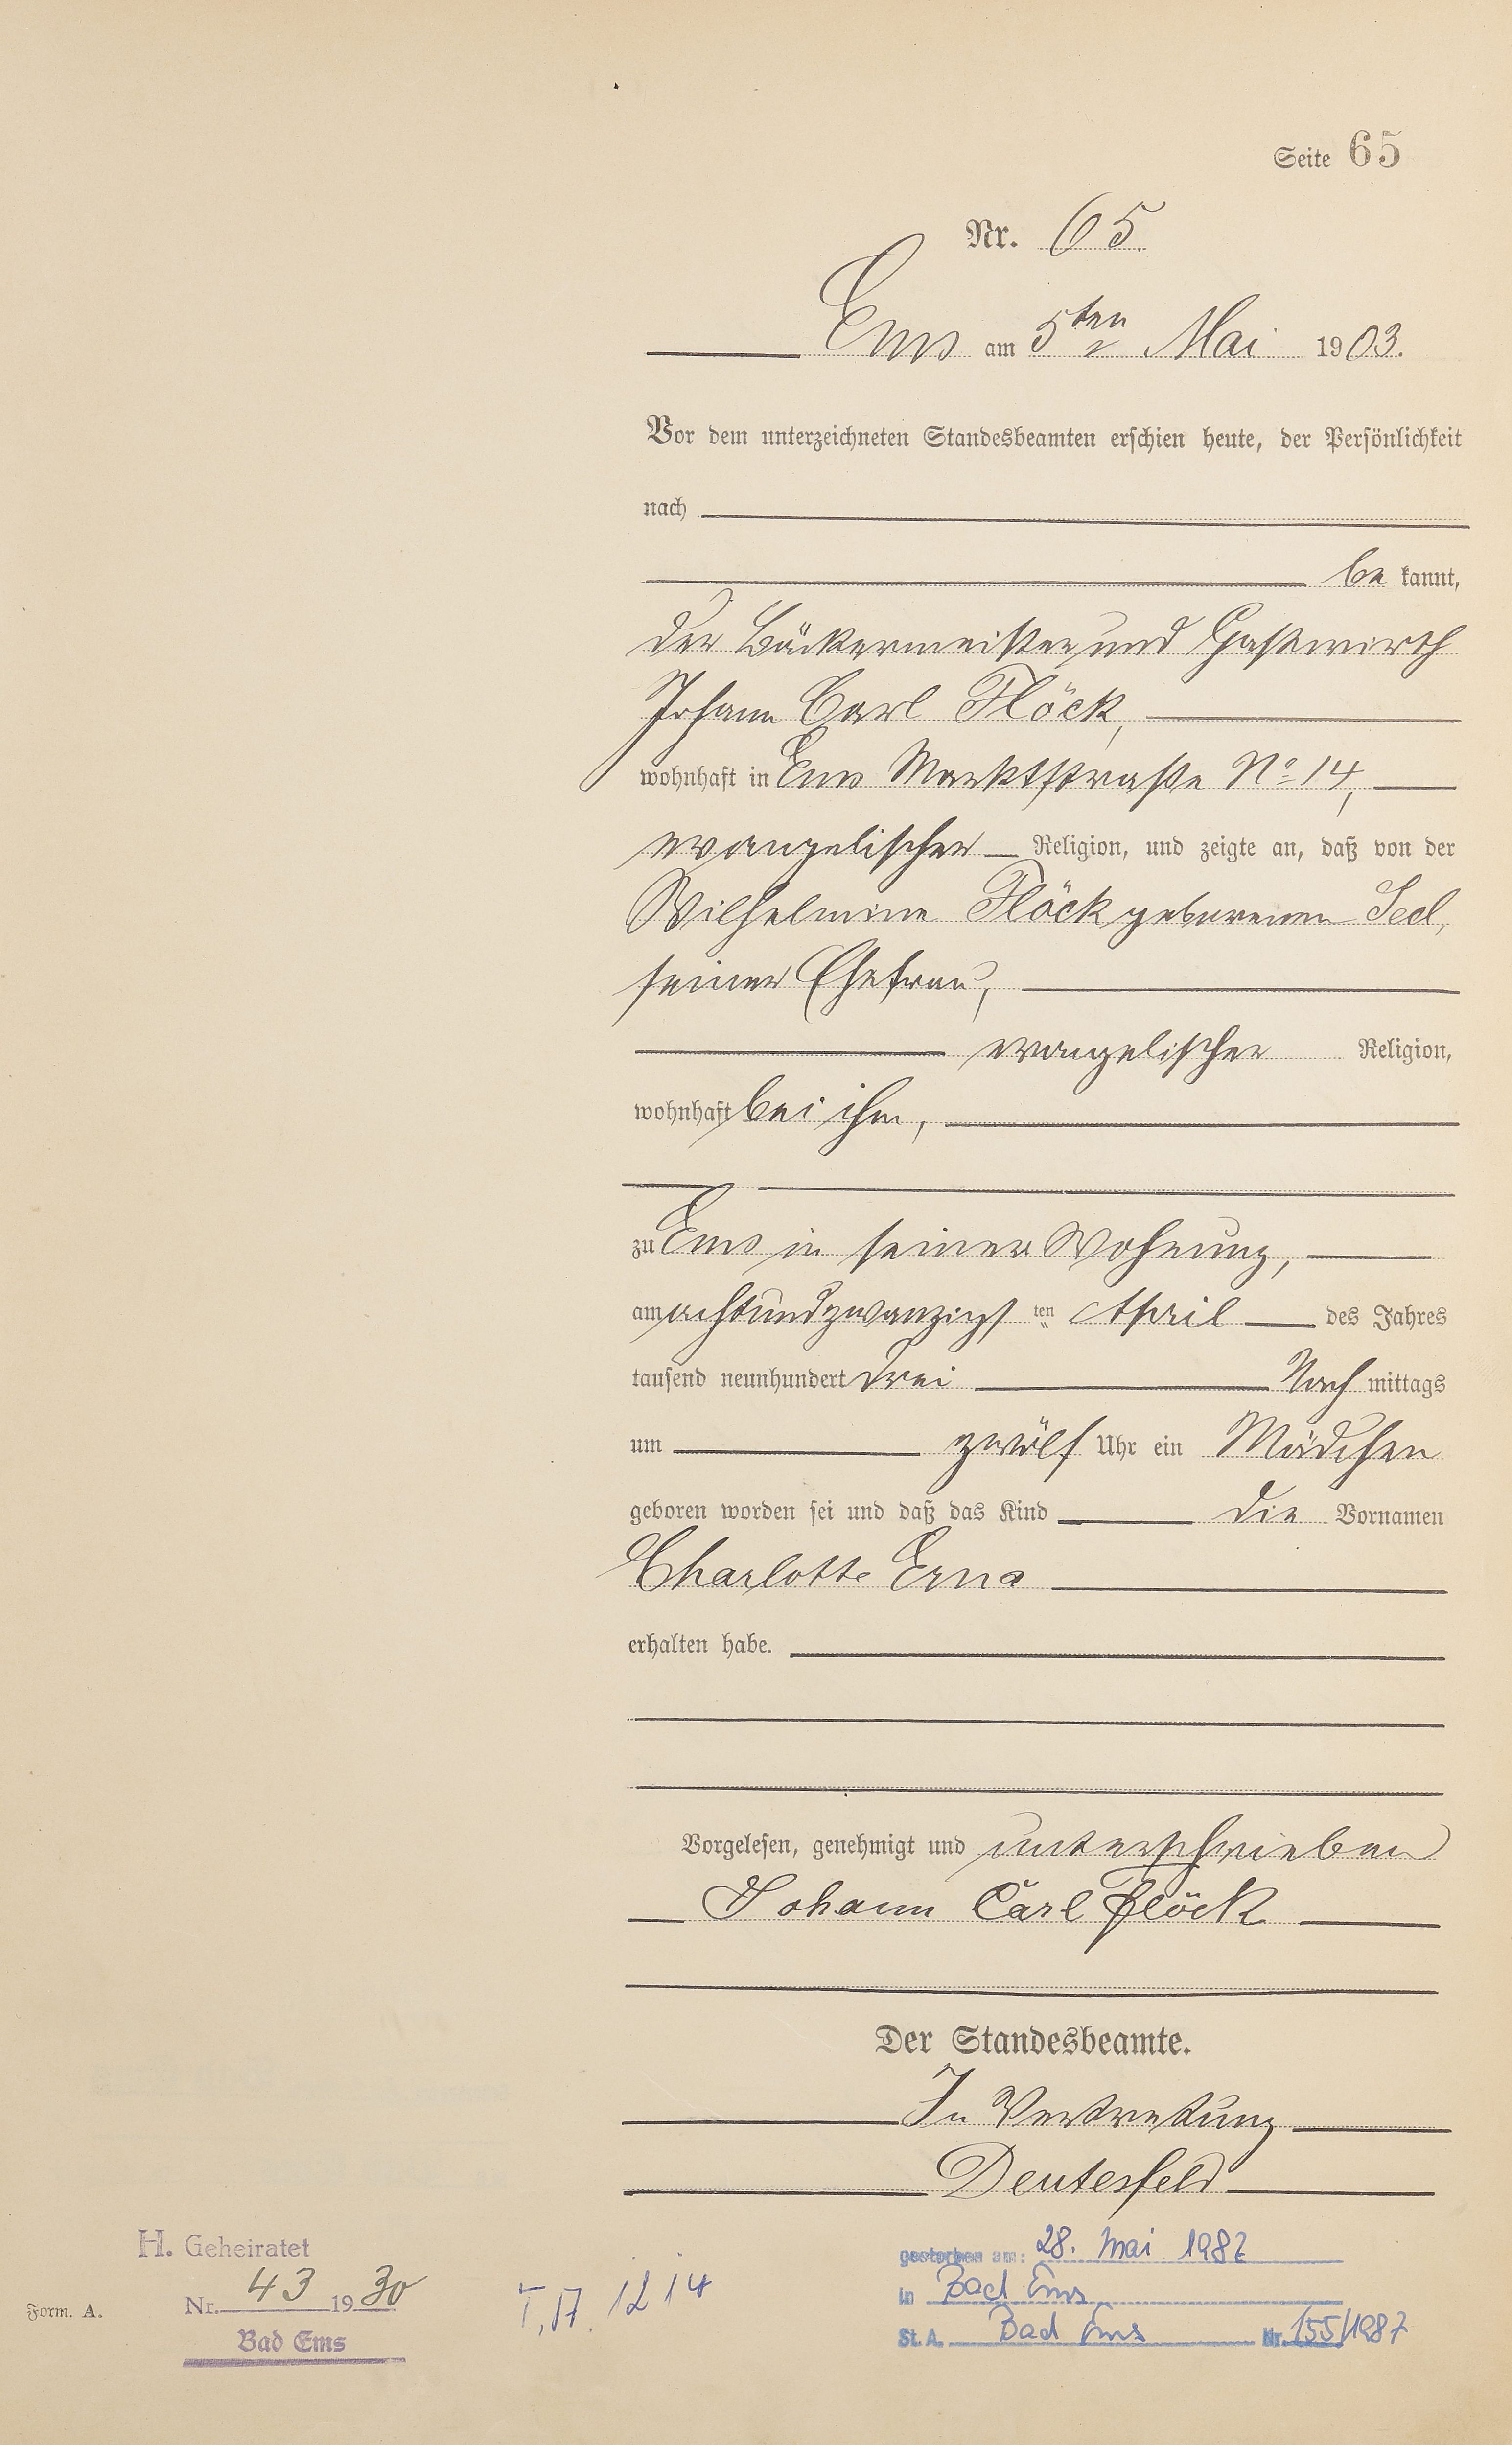 Seite 65
Nr. 65.
Ems am 5ten Mai 1903.
Vor dem unterzeichneten Standesbeamten erschien heute, der Persönlichkeit
nach
be kannt,
der Bäckermeister und Gastwirth
Johann Carl Flöck,
wohnhaft in Ems Marktstraße No 14,
evangelischer Religion, und zeigte an, daß von der
Wilhelmine Flöck geborenen
seiner Ehefrau,
evangelischer Religion,
wohnhaft bei ihm,
zu Ems in seiner Wohnung,
am achtundzwanzigs ten April des Jahres
tausend neunhundert drei Nach mittags
um zwölf Uhr ein Mädchen
geboren worden sei und daß das Kind die Vornamen
Charlotte Erna
erhalten habe.
Vorgelesen, genehmigt und unterschrieben
Johann Carl Flöck
Der Standesbeamte.
In Vertretung
Deutesfeld
H. Geheiratet
Nr. 43 1930
Bad Ems
Form. A.
1214
gestorben am: 28. Mai 1987
in Bad Ems
St. A. Bad Ems Nr. 155/1987